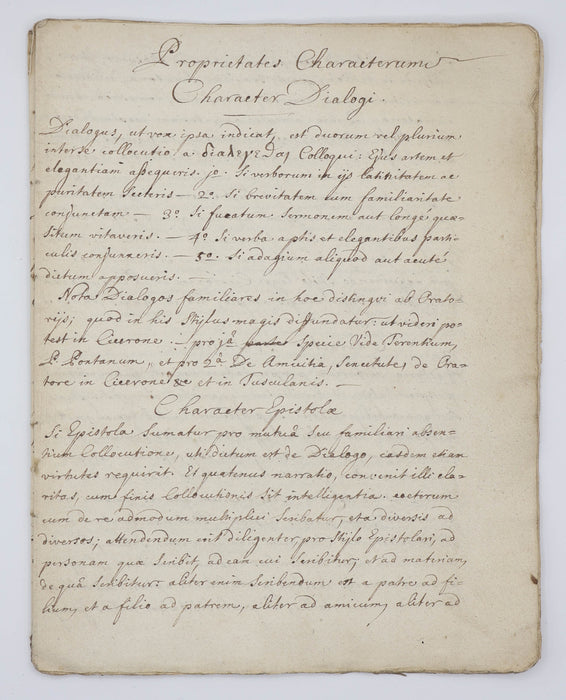 Proprietates Characterum
Character Dialogi.
Dialogus, ut vox ipsa indicat, est duorum vel plurium
interse collocutio a διαλεγεϑαι Colloqui: Ejus artem et
elegantiam assequeris. 1º. Si verborum in ijs latinitatem ac
puritatem secteris – 2º. Si brevitatem cum familiaritate
conjunctam – 3º. Si fucatum sermonem aut longé quæ-
situm vitaveris. – 4º. Si verba aptis et elegantibus parti-
culis conjunxeris. – 5º. Si adagium aliquod aut acuté
dictum apposueris. –
Nota Dialogos familiares in hoc distingvi ab Orato-
rijs; quod in his Stylus magis diffundatur: ut videri po-
test in Cicerone. pro 1â Speice Vide Terentium,
P. Pontanum, et pro 2â De Amicitia, Senectute, de Ora-
tore in Cicerone et in Tusculanis. –
Character Epistolæ
Si Epistola Sumatur pro mutuâ Seu familiari absen-
tium Collocutione, uti dictum est de Dialogo, easdem etiam
virtutes requirit. Et quatenus narratio, convenit illi cla-
ritas, cum finis Collocutionis Sit intelligentia. cæterum
cum de re admodum multiplici Scribatur, et a diversis ad
diversos; attendendum erit diligenter, pro Stylo Epistolari, ad
personam quæ Scribit, ad eam cui Scribitur, et ad materiam,
de quâ Scribitur: aliter enim Scribendum est a patre ad fi-
lium, et a filio ad patrem, aliter ad amicum, aliter ad